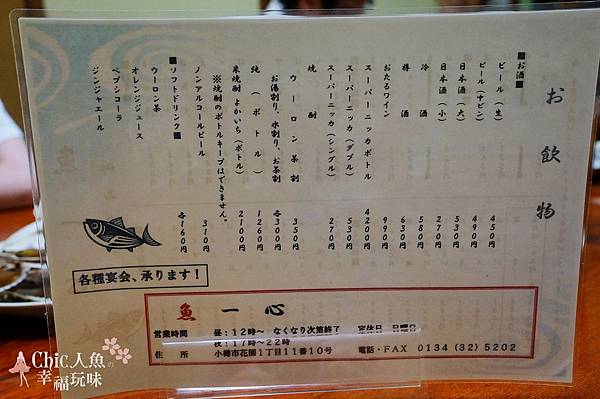 お飲物
■お酒■
ビール(生) 450円
ビール(キビン) 490円
日本酒(大) 530円
日本酒(小) 270円
冷酒 580円
樽酒 630円
おたるワイン 990円
スーパーニッカボトル 4200円
スーパーニッカ(ダブル) 530円
スーパーニッカ(シングル) 270円
焼酎
ウーロン茶割 350円
お湯割り、水割り、お茶割 各300円
純(ボトル) 1260円
米焼酎よかいち(ボトル) 2100円
※焼酎のボトルキープはできません。
ノンアルコールビール 310円
■ソフトドリンク■
ウーロン茶 各160円
オレンジジュース
ペプシコーラ
ジンジャエール
各種宴会、承ります!
魚一心
営業時間 昼:12時〜 なくなり次第終了 定休日 日曜日
夜:17時〜22時
住所 小樽市花園1丁目11番10号 電話・FAX 0134(32)5202
Chic人魚の
幸福玩味